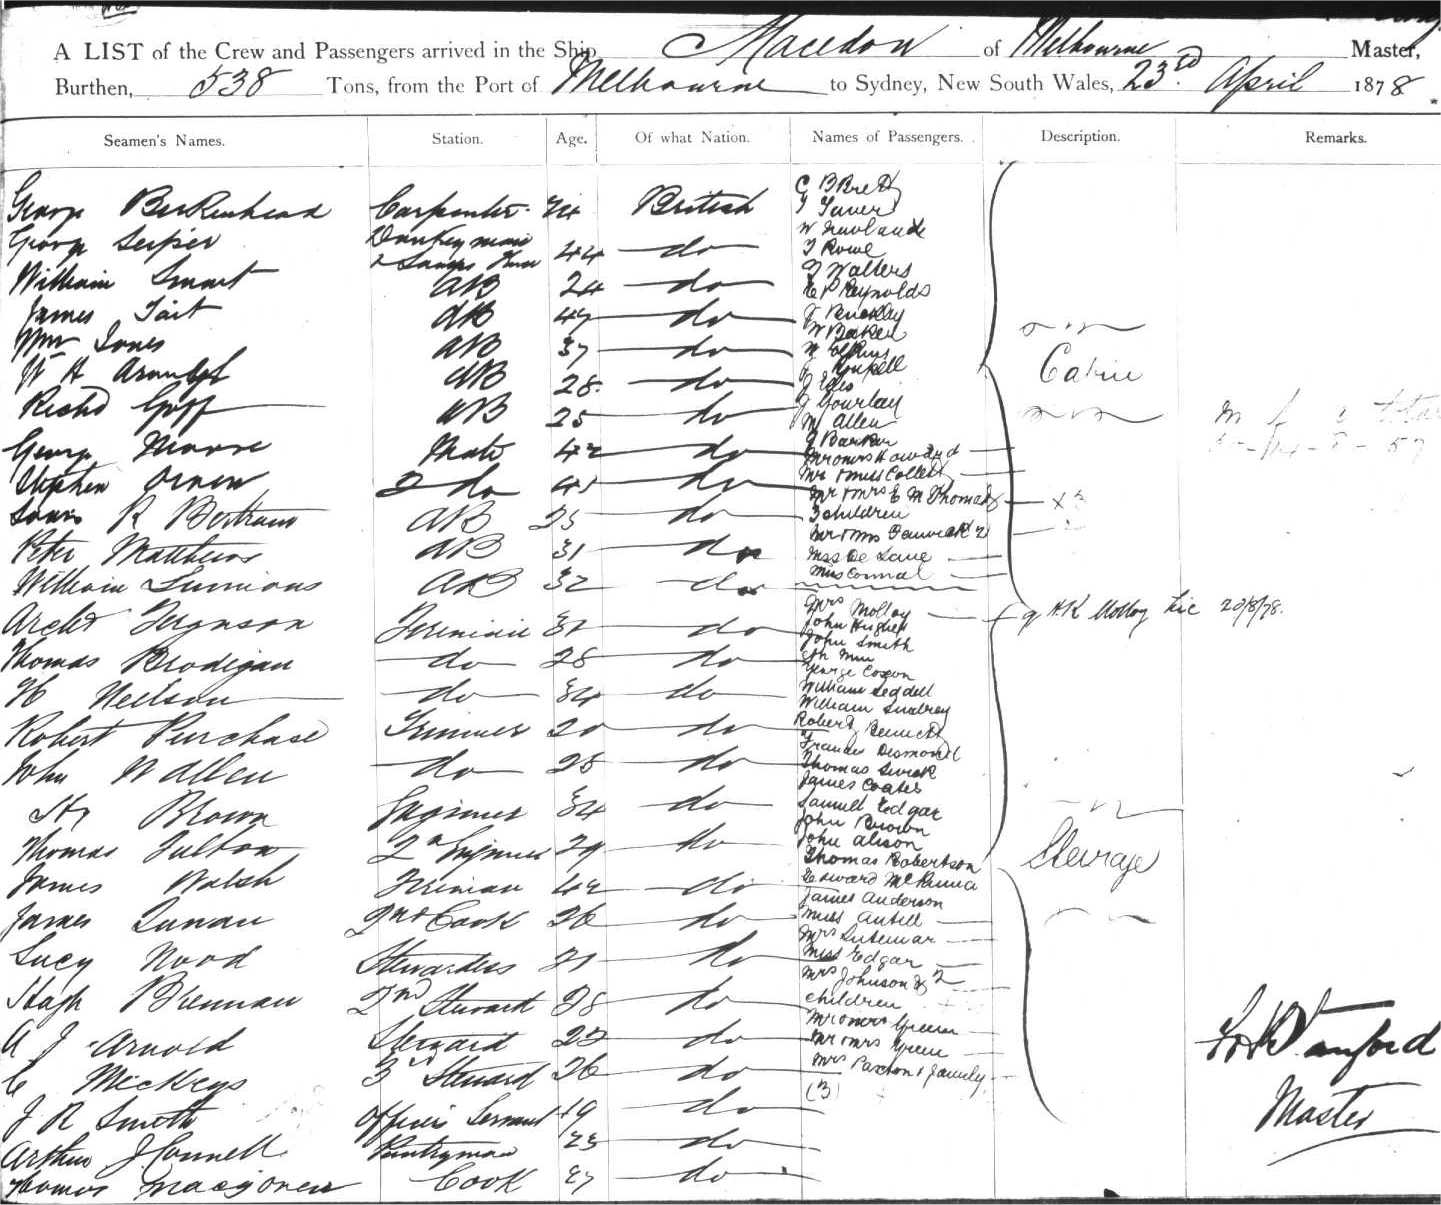 A LIST of the Crew and Passengers arrived in the Ship Macedon of Melbourne Master,
Burthen, 538 Tons, from the Port of Melbourne to Sydney, New South Wales, 23rd April 1878
Seamen's Names. Station. Age. Of what Nation. Names of Passengers. Description. Remarks.
George Birkenhead Carpenter 24 British
George 44 do
William Smart AB 24 do
James Tait AB 47 do
Wm Jones AB 37 do
W H AB 28 do
Richd Goff AB 25 do
George Moore Mate 42 do
Stephen 2 do 45 do
Louis R Bertram AB 25 do
Peter Matthews AB 31 do
William AB 32 do
Archd Ferguson Fireman 31 do
Thomas Brodigan do 28 do
H Neilson do 34 do
Robert Purchase Trimmer 20 do
John W Allen do 25 do
Hy Brown Engineer 34 do
Thomas Fulton 2nd Engineer 29 do
James Walsh Fireman 42 do
James Lunan 2nd Cook 26 do
Lucy Wood Stewardess 21 do
Hugh Brennan 2nd Steward 28 do
A J Arnold Steward 23 do
C McKeys 3rd Steward 26 do
J R Smith Officers Servant 19 do
Arthur J Connell Pantryman 23 do
Thomas Cook 27 do
C B Brett
W Newlands
J Rowe
J Walters
E P Reynolds
J Buckley
W Baker
J Gourlay
M Allen
J Barker
Mr & Mrs Howard
Mr & Miss Collett
Mr & Mrs E M Thomas & x 3
3 children
Mr & Mrs Fenwick 2
Miss De Lane
Miss Connal
Cabin
Mrs Molloy
John Hughes
John Smith
George Coxon
William Seddell
William
Robert
Francis Desmond
Thomas
James Coates
Samuel Edgar
John Brown
John Alison
Thomas Robertson
Edward McKenna
James Anderson
Miss
Mrs
Miss Edgar
Mrs Johnson & 2
children
Mr & Mrs Green
Mr & Mrs Green
Mrs Paxton & family
(3)
Steerage
Molloy 20/8/78.
Stanford
Master